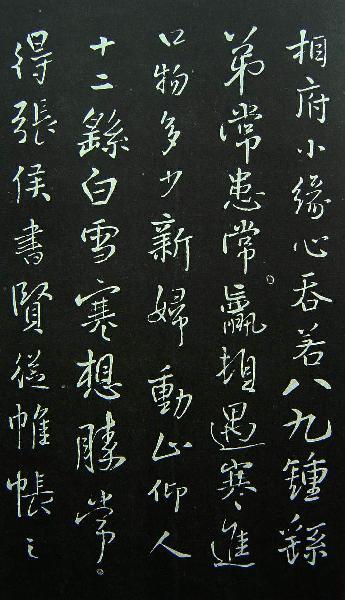 相府小緣心吞若八九鍾繇
弟常患常。羸頓遇寒進
口物多少新婦動止仰人
十二繇白雪寒想勝常。
得張侯書賢從帷帳之